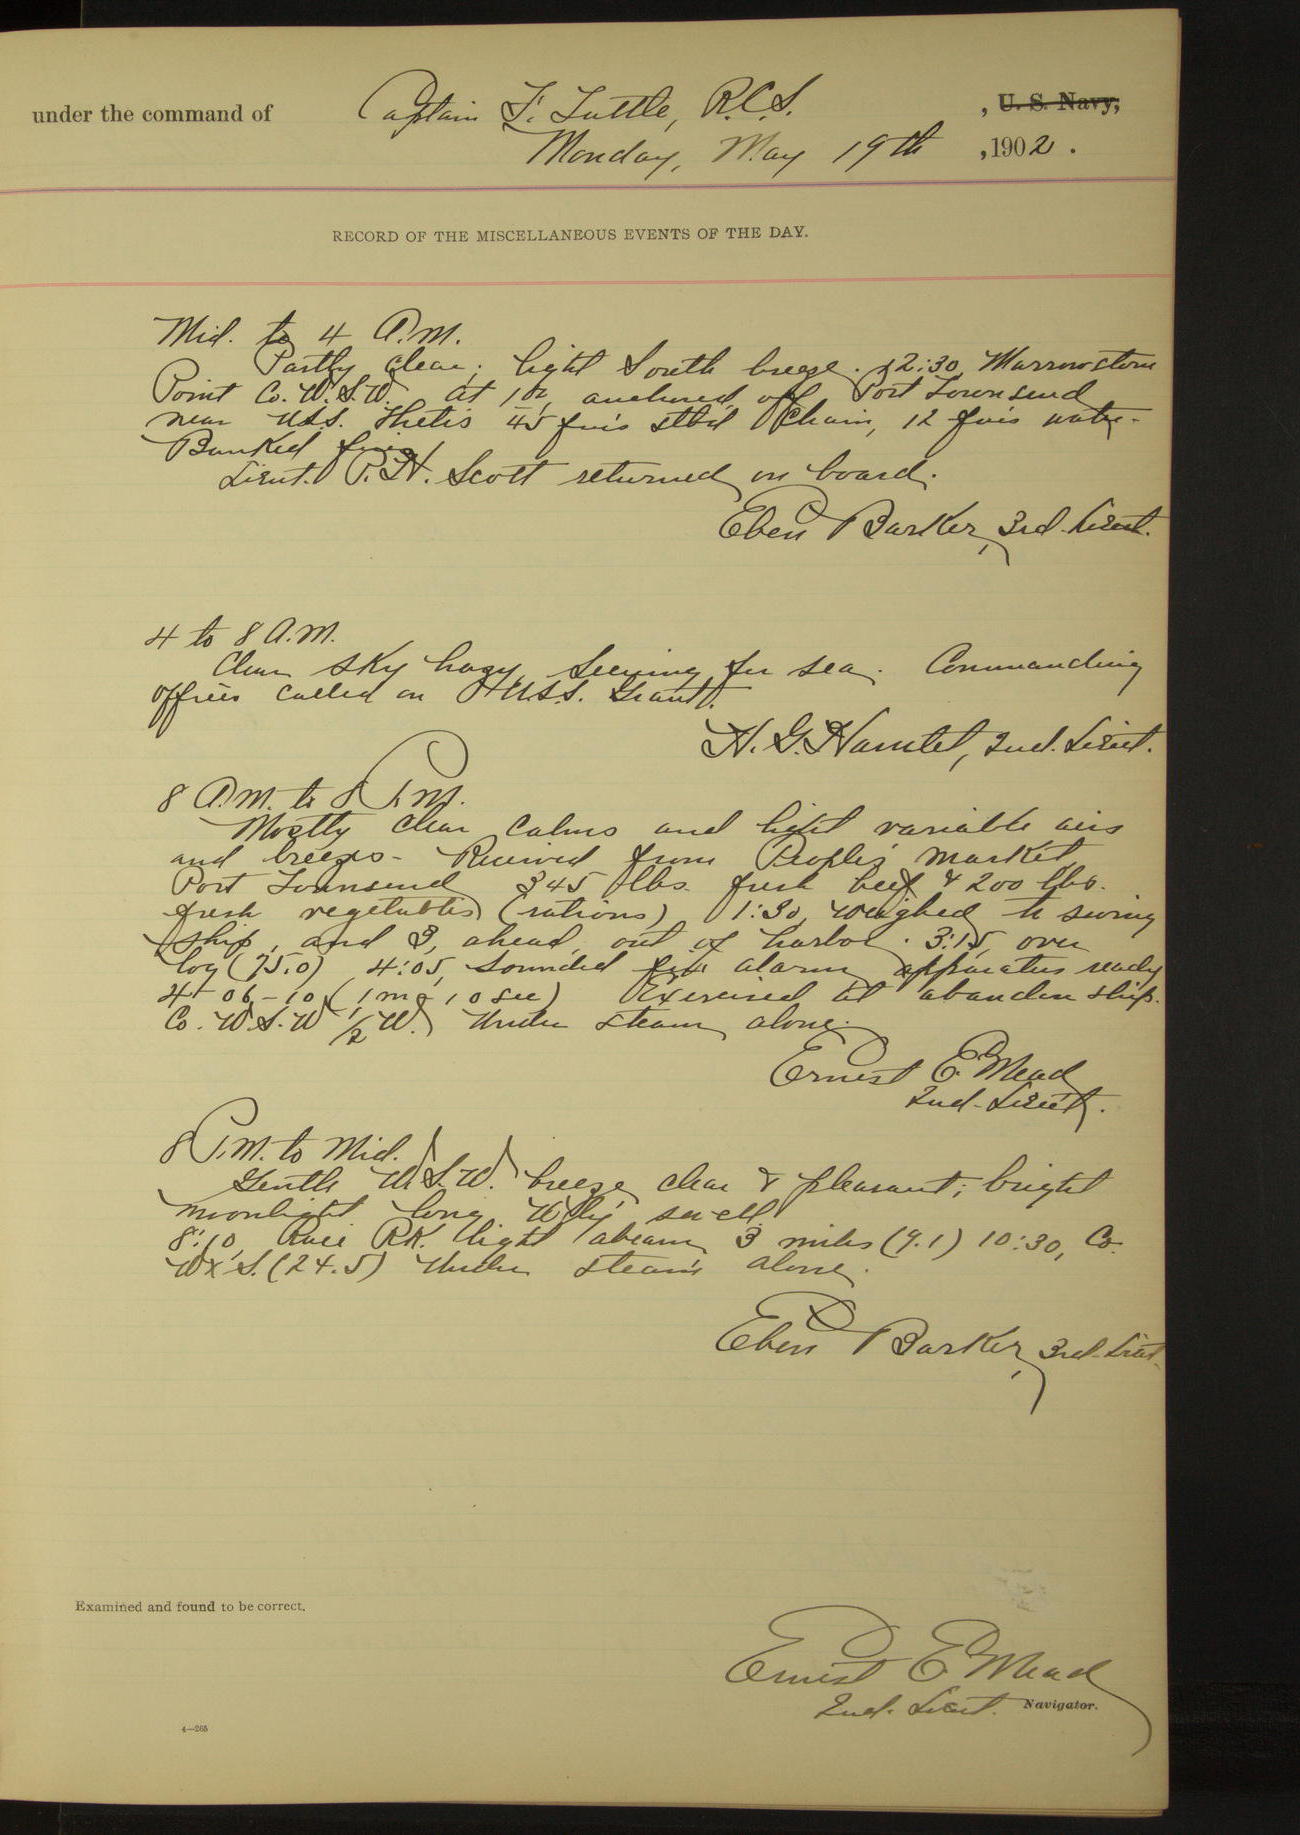 under the command of Captain F. Tuttle, R.C.S. , U. S. Navy,
Monday, May 19th , 1902 .
RECORD OF THE MISCELLANEOUS EVENTS OF THE DAY.
Mid. to 4 A.M.
Partly clear; light South breeze. 12:30, Marrowstone
Point Co. W.S.W. At 1 anchored off Port Townsend
near U.S.S. Thetis 45 fm's stb'd chain, 12 fm's water.
Banked fires
Lieut. P.H. Scott returned on board.
Eben Barker, 3rd. Lieut.
4 to 8 A.M.
Clear sky hazy. Securing for sea. Commanding
officer called on U.S.S. Grant.
H. G. Hamlet, 2nd. Lieut.
8 A.M. to 8 P.M.
Mostly clear calms and light variable airs
and breezes - Received from People's Market
Port Townsend 345 lbs. fresh beef & 200 lbs.
fresh vegetables (rations) 1:30, weighed to swing
ship, and 3, ahead out of harbor. 3:15, over
log (75.0) 4:05, sounded fire alarm apparatus ready
4-06-10 (1 m & 10 sec) Exercised at abandon ship.
Co. W.S.W 1/2 W. Under steam alone.
Ernest E. Mead
2nd. Lieut.
8 P.M. to Mid.
Gentle W.S.W. breeze, clear & pleasant; bright
moonlight long W'ly swell
8:10, Race Rk. light abeam 3 miles (9.1) 10:30, Co.
WxS. (24.5) Under steam alone.
Eben Barker, 3rd. Lieut.
Examined and found to be correct.
Ernest E. Mead
2nd. Lieut. Navigator.
4—265